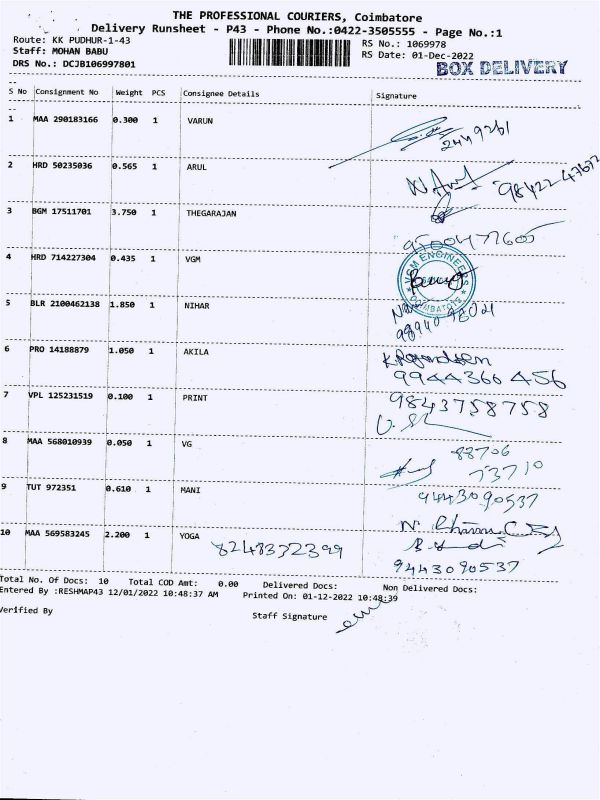 THE PROFESSIONAL COURIERS, Coimbatore
Delivery Runsheet - P43 - Phone No.:0422-3505555 - Page No.:1
Route: KK PUDHUR-1-43
RS No.: 1069978
Staff: MOHAN BABU
RS Date: 01-Dec-2022
DRS No.: DCJB106997801
BOX DELIVERY
S No Consignment No Weight PCS Consignee Details Signature
1 MAA 290183166 0.300 1 VARUN
2449261
2 HRD 50235036 0.565 1 ARUL
98422 47672
3 BGM 17511701 3.750 1 THEGARAJAN
9500477605
4 HRD 714227304 0.435 1 VGM
VGM ENGINEERS
COIMBATORE
5 BLR 2100462138 1.850 1 NIHAR
98940 98021
6 PRO 14188879 1.050 1 AKILA
9944360456
7 VPL 125231519 0.100 1 PRINT
9843758758
8 MAA 568010939 0.050 1 VG
88706
73710
9 TUT 972351 0.610 1 MANI
9443090537
10 MAA 569583245 2.200 1 YOGA
8248372399
9443090537
Total No. Of Docs: 10 Total COD Amt: 0.00 Delivered Docs: Non Delivered Docs:
Entered By :RESHMAP43 12/01/2022 10:48:37 AM Printed On: 01-12-2022 10:48:39
Verified By
Staff Signature